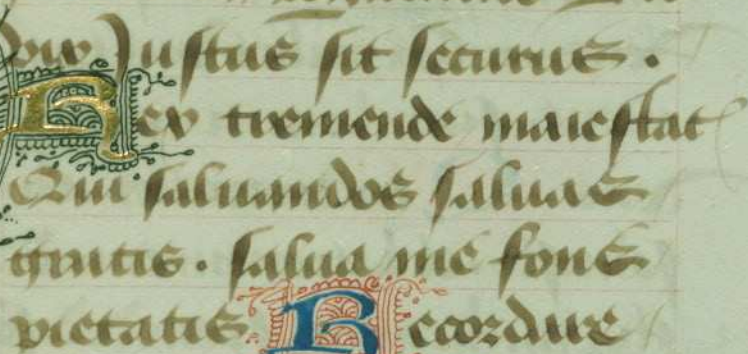 vix Justus sit securus .
Rex tremende maiestat
Qui saluandos saluas
gratis . salua me fons
pietatis Recordare